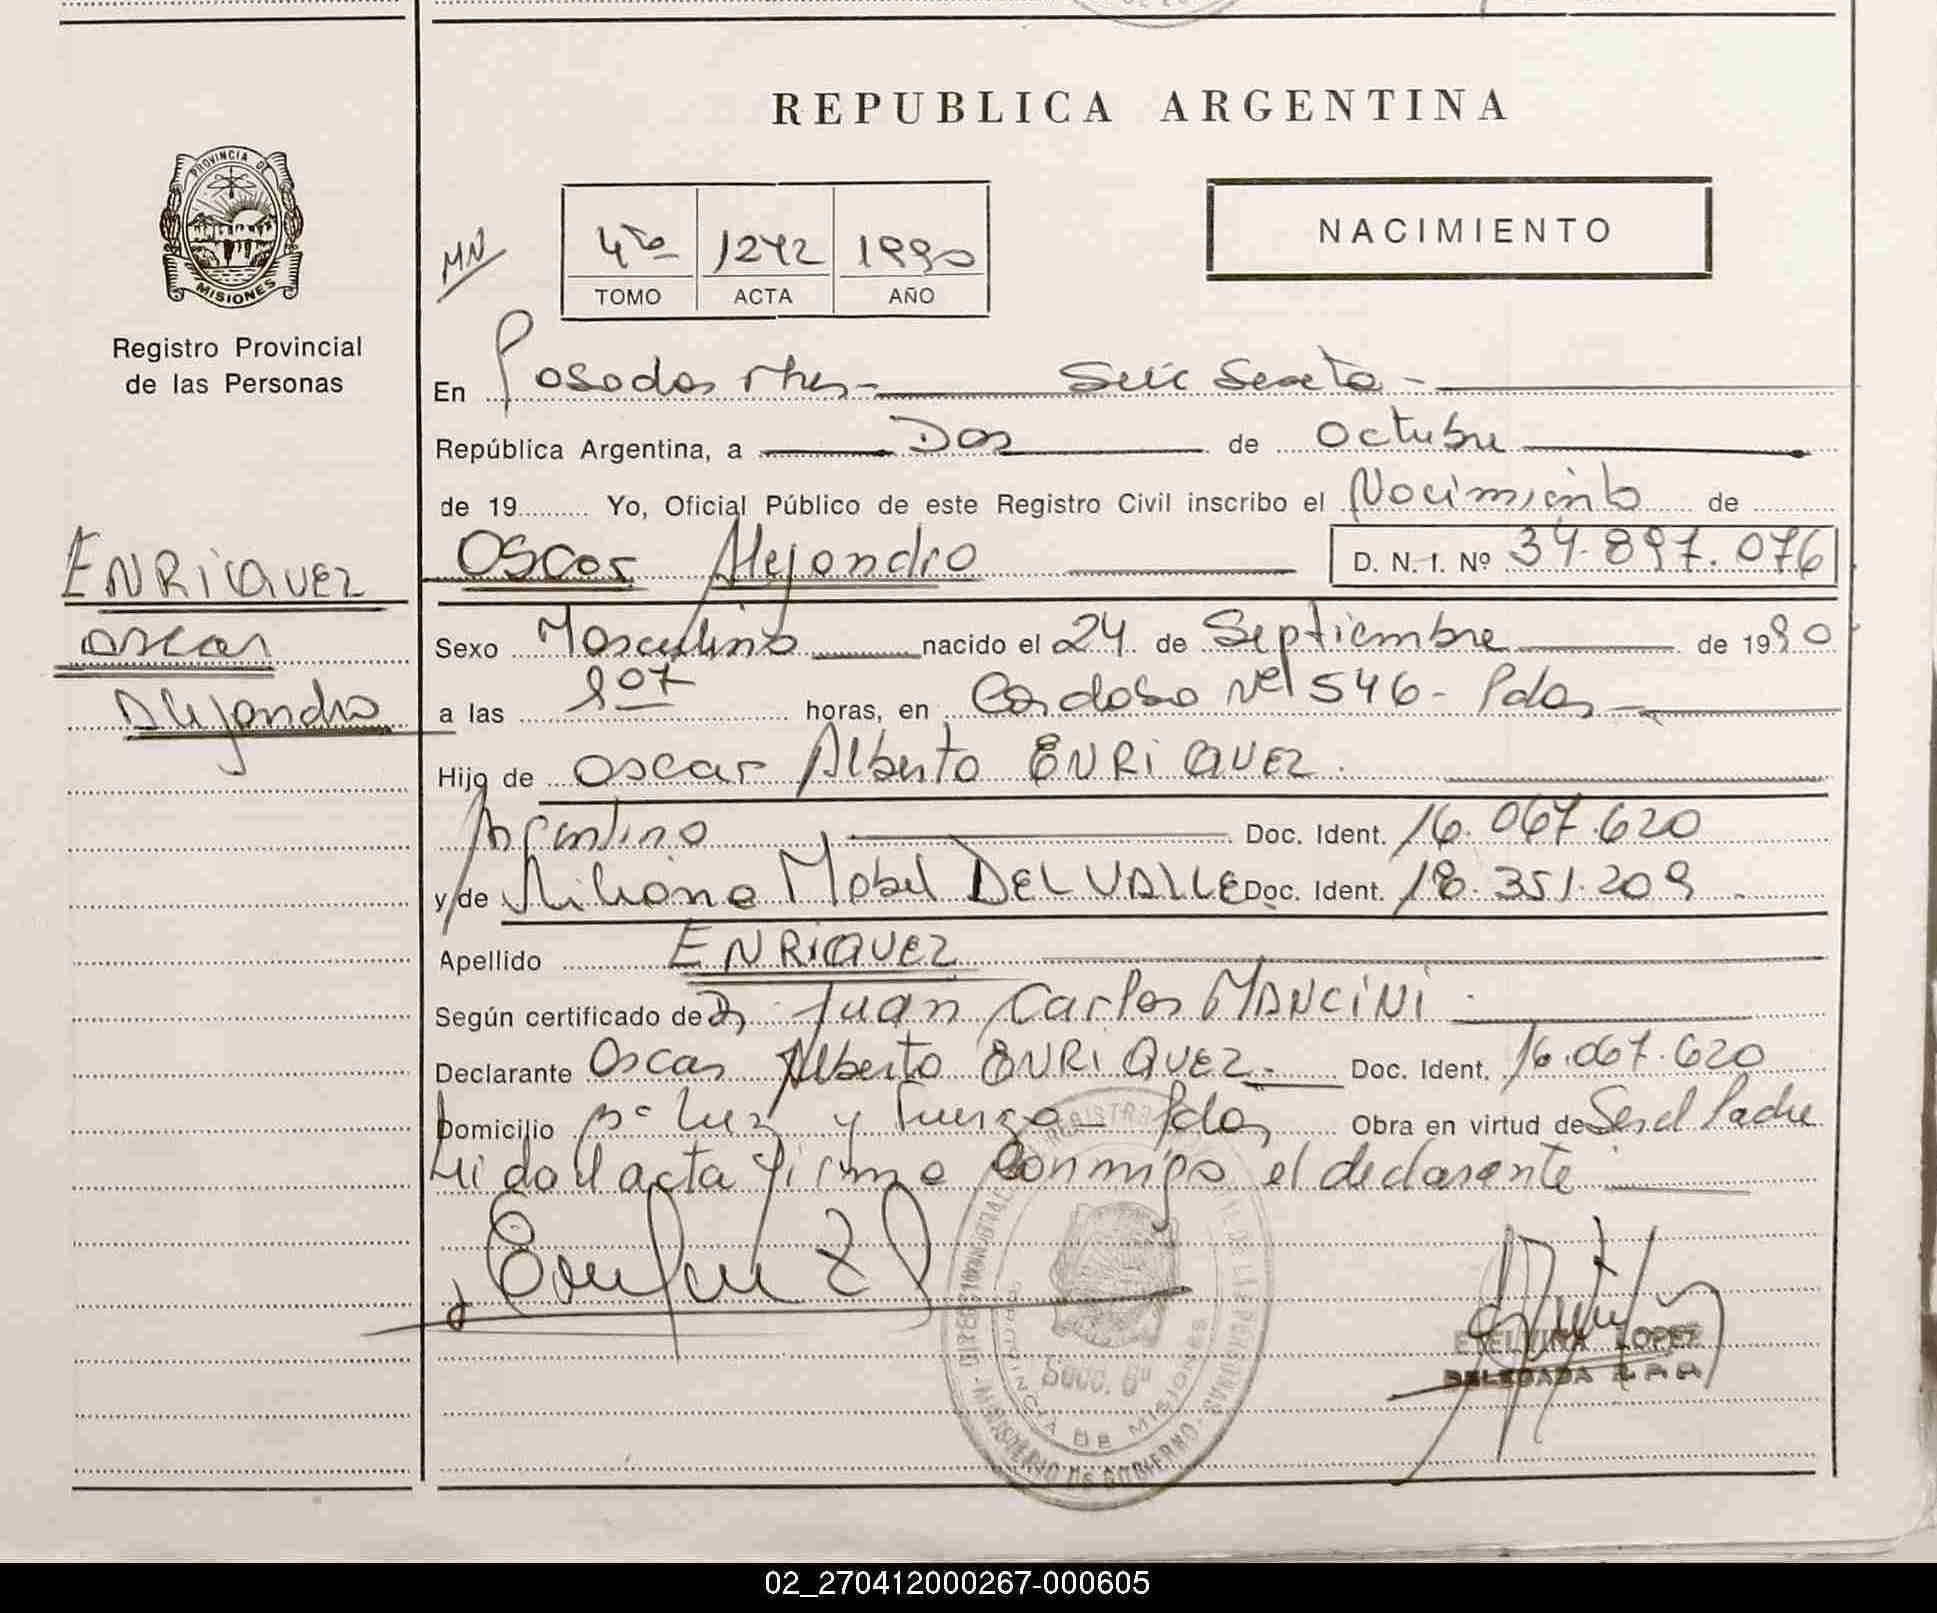 REPUBLICA ARGENTINA
PROVINCIA DE
MISIONES
Registro Provincial
de las Personas
MN
4to 1242 1990
TOMO ACTA AÑO
NACIMIENTO
En Posadas Mnes- Secc Sexta -
República Argentina, a Dos de Octubre
de 19 Yo, Oficial Público de este Registro Civil inscribo el Nacimiento de
ENRIQUEZ
Oscar
Alejandro
Oscar Alejandro D. N. I. Nº 34.897.076
Sexo Masculino nacido el 24 de Septiembre de 1990
a las 907 horas, en Cordoba Nº 546 - Pdas -
Hijo de Oscar Alberto ENRIQUEZ.
Argentino Doc. Ident. 16.067.620
y de Mabel DEL VALLE Doc. Ident. 18.351.209
Apellido ENRIQUEZ
Según certificado de Dr Juan Carlos MANCINI -
Declarante Oscar Alberto ENRIQUEZ.- Doc. Ident. 16.067.620
Domicilio Bº Luz y Fuerza Pdas Obra en virtud de Ser el Padre
Leida el acta firma conmigo el declarante
Secc. 6ª
PROVINCIA DE MISIONES
MINISTERIO DE GOBIERNO
ETELVINA LOPEZ
DELEGADA
02_270412000267-000605